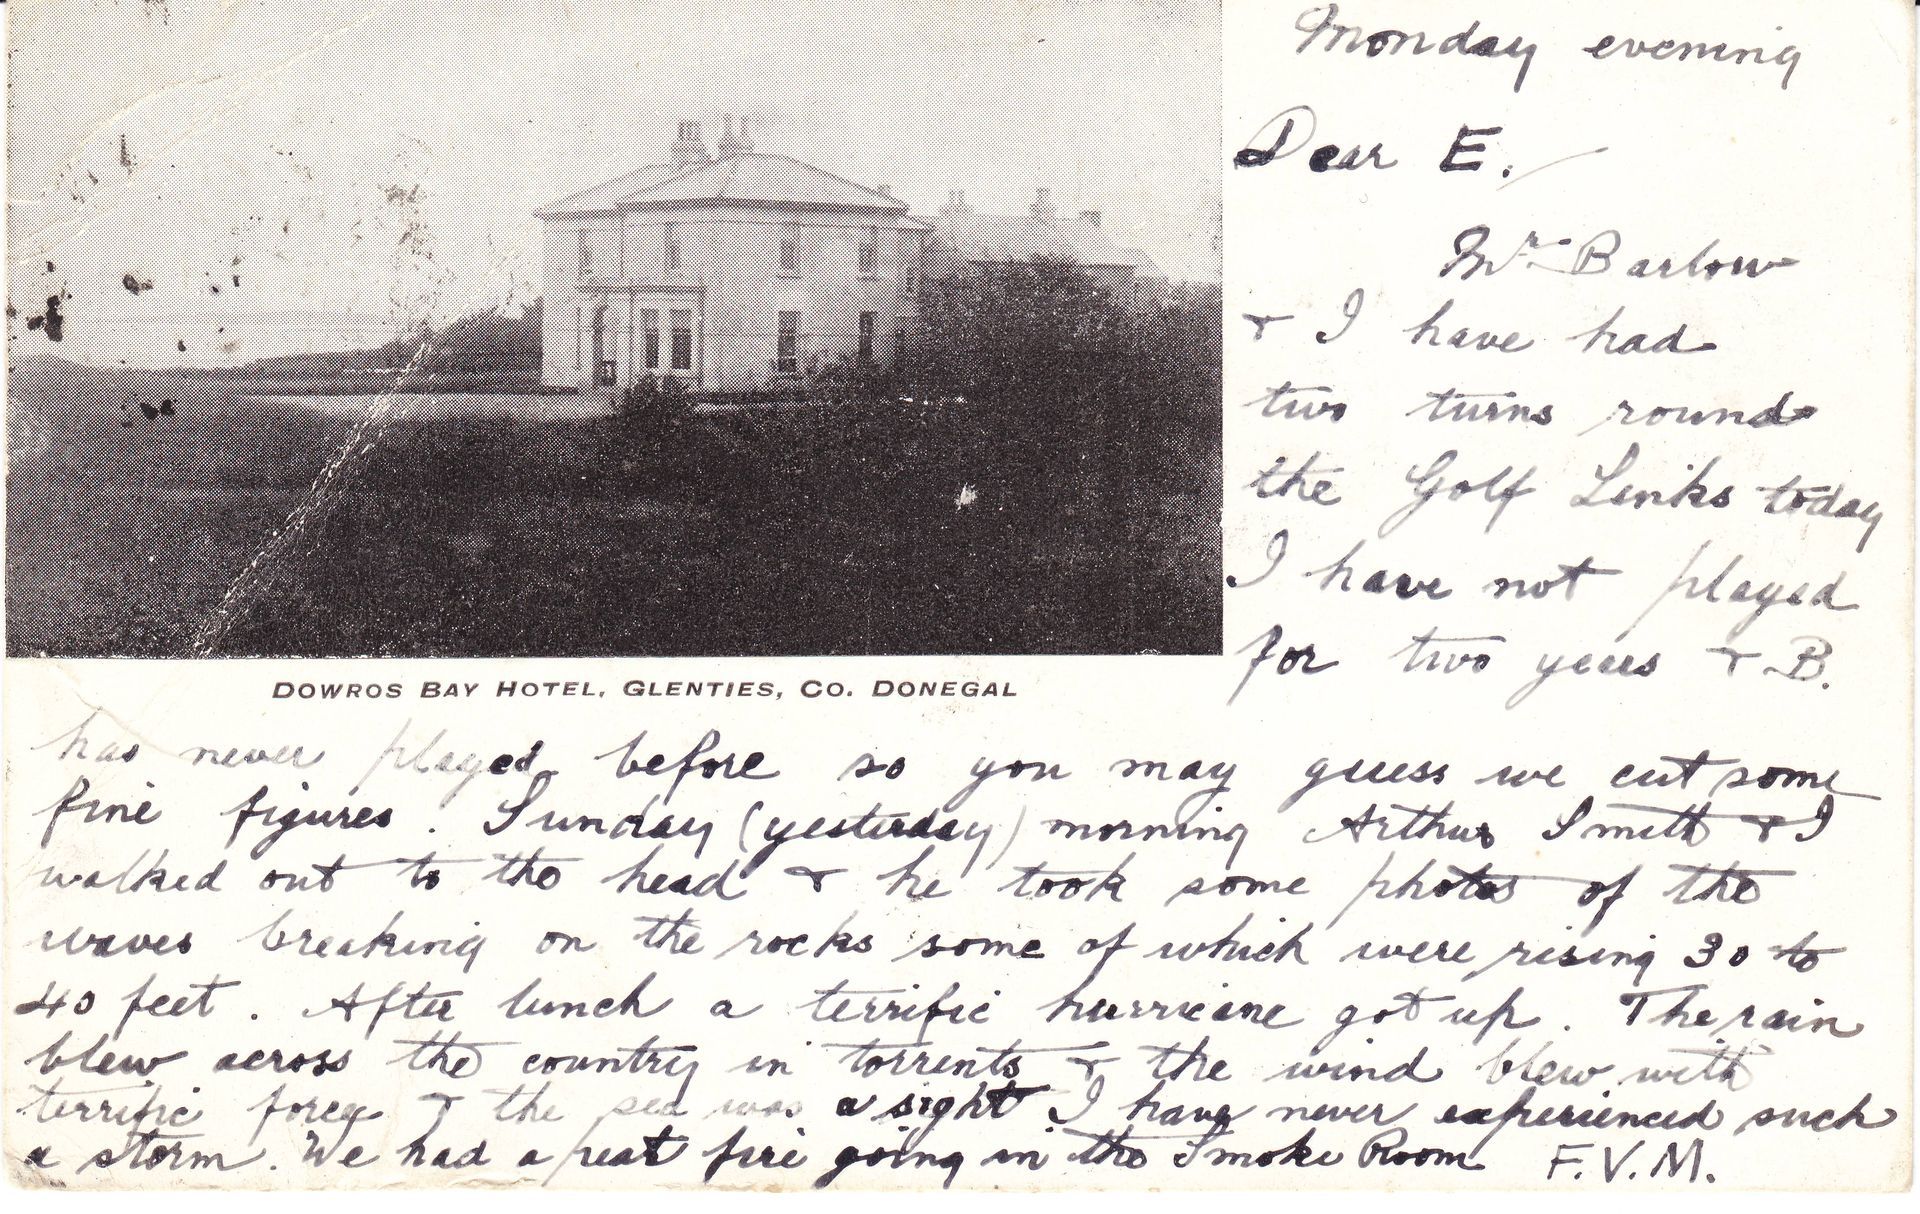 Monday evening
Dear E.
Mr Barlow
& I have had
two turns round
the Golf Links today
I have not played
for two years & B.
DOWROS BAY HOTEL, GLENTIES, CO. DONEGAL
has never played before so you may guess we cut some
fine figures. Sunday (yesterday) morning Arthur Smith & I
walked out to the head & he took some photos of the
waves breaking on the rocks some of which were rising 30 to
40 feet. After lunch a terrific hurricane got up. The rain
blew across the country in torrents & the wind blew with
terrific force & the sea was a sight I have never experienced such
a storm. We had a peat fire going in the Smoke Room F.V.M.